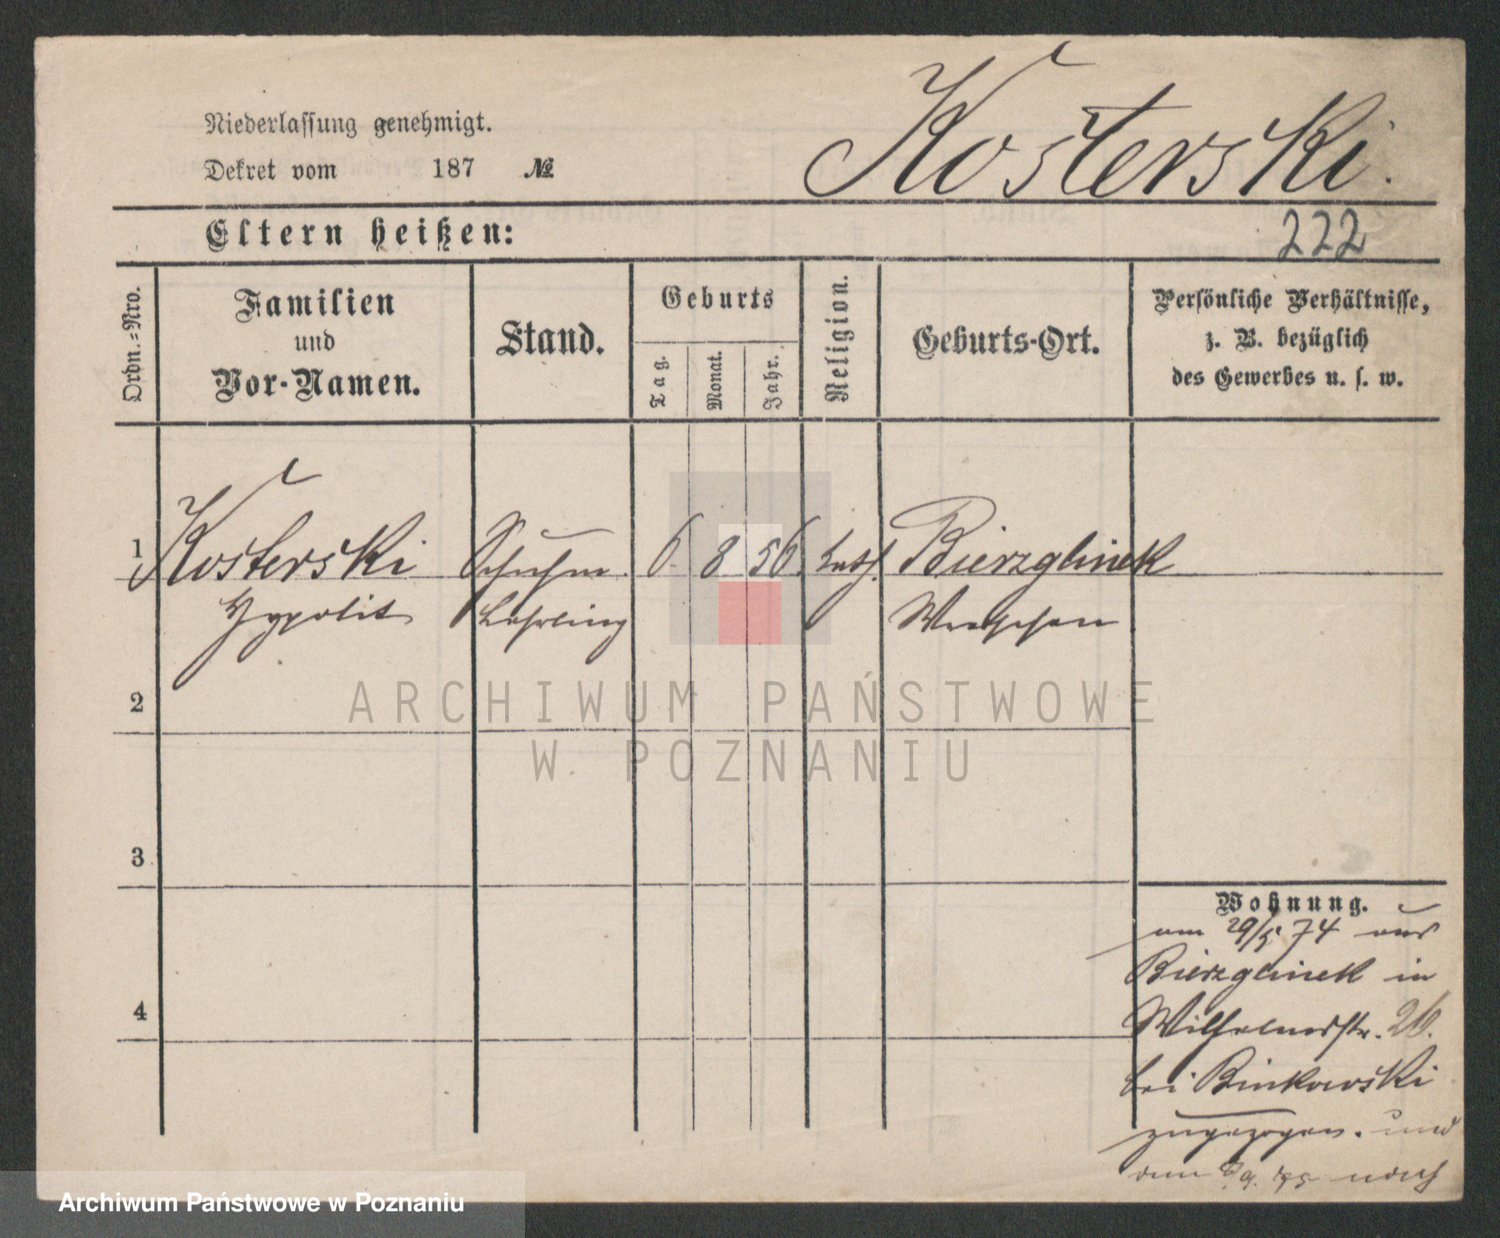 Niederlassung genehmigt.
Dekret vom 187 №
Kosterski.
Eltern heißen:
222
Ordn.-Nro.
Familien
und
Vor-Namen.
Stand.
Geburts
Tag.
Monat.
Jahr.
Religion.
Geburts-Ort.
Persönliche Verhältnisse,
z. B. bezüglich
des Gewerbes u. s. w.
1 Kosterski Schuhm. 6. 8. 56. kath. Bierzglinek
Hypolit Lehrling Wreschen
2
3
4
Wohnung.
am 29/5 74 aus
Bierzglinek in
Wilhelmstr. 26.
bei Binkowski
zugezogen. und
am 9. 75 nach
ARCHIWUM PAŃSTWOWE
W POZNANIU
Archiwum Państwowe w Poznaniu